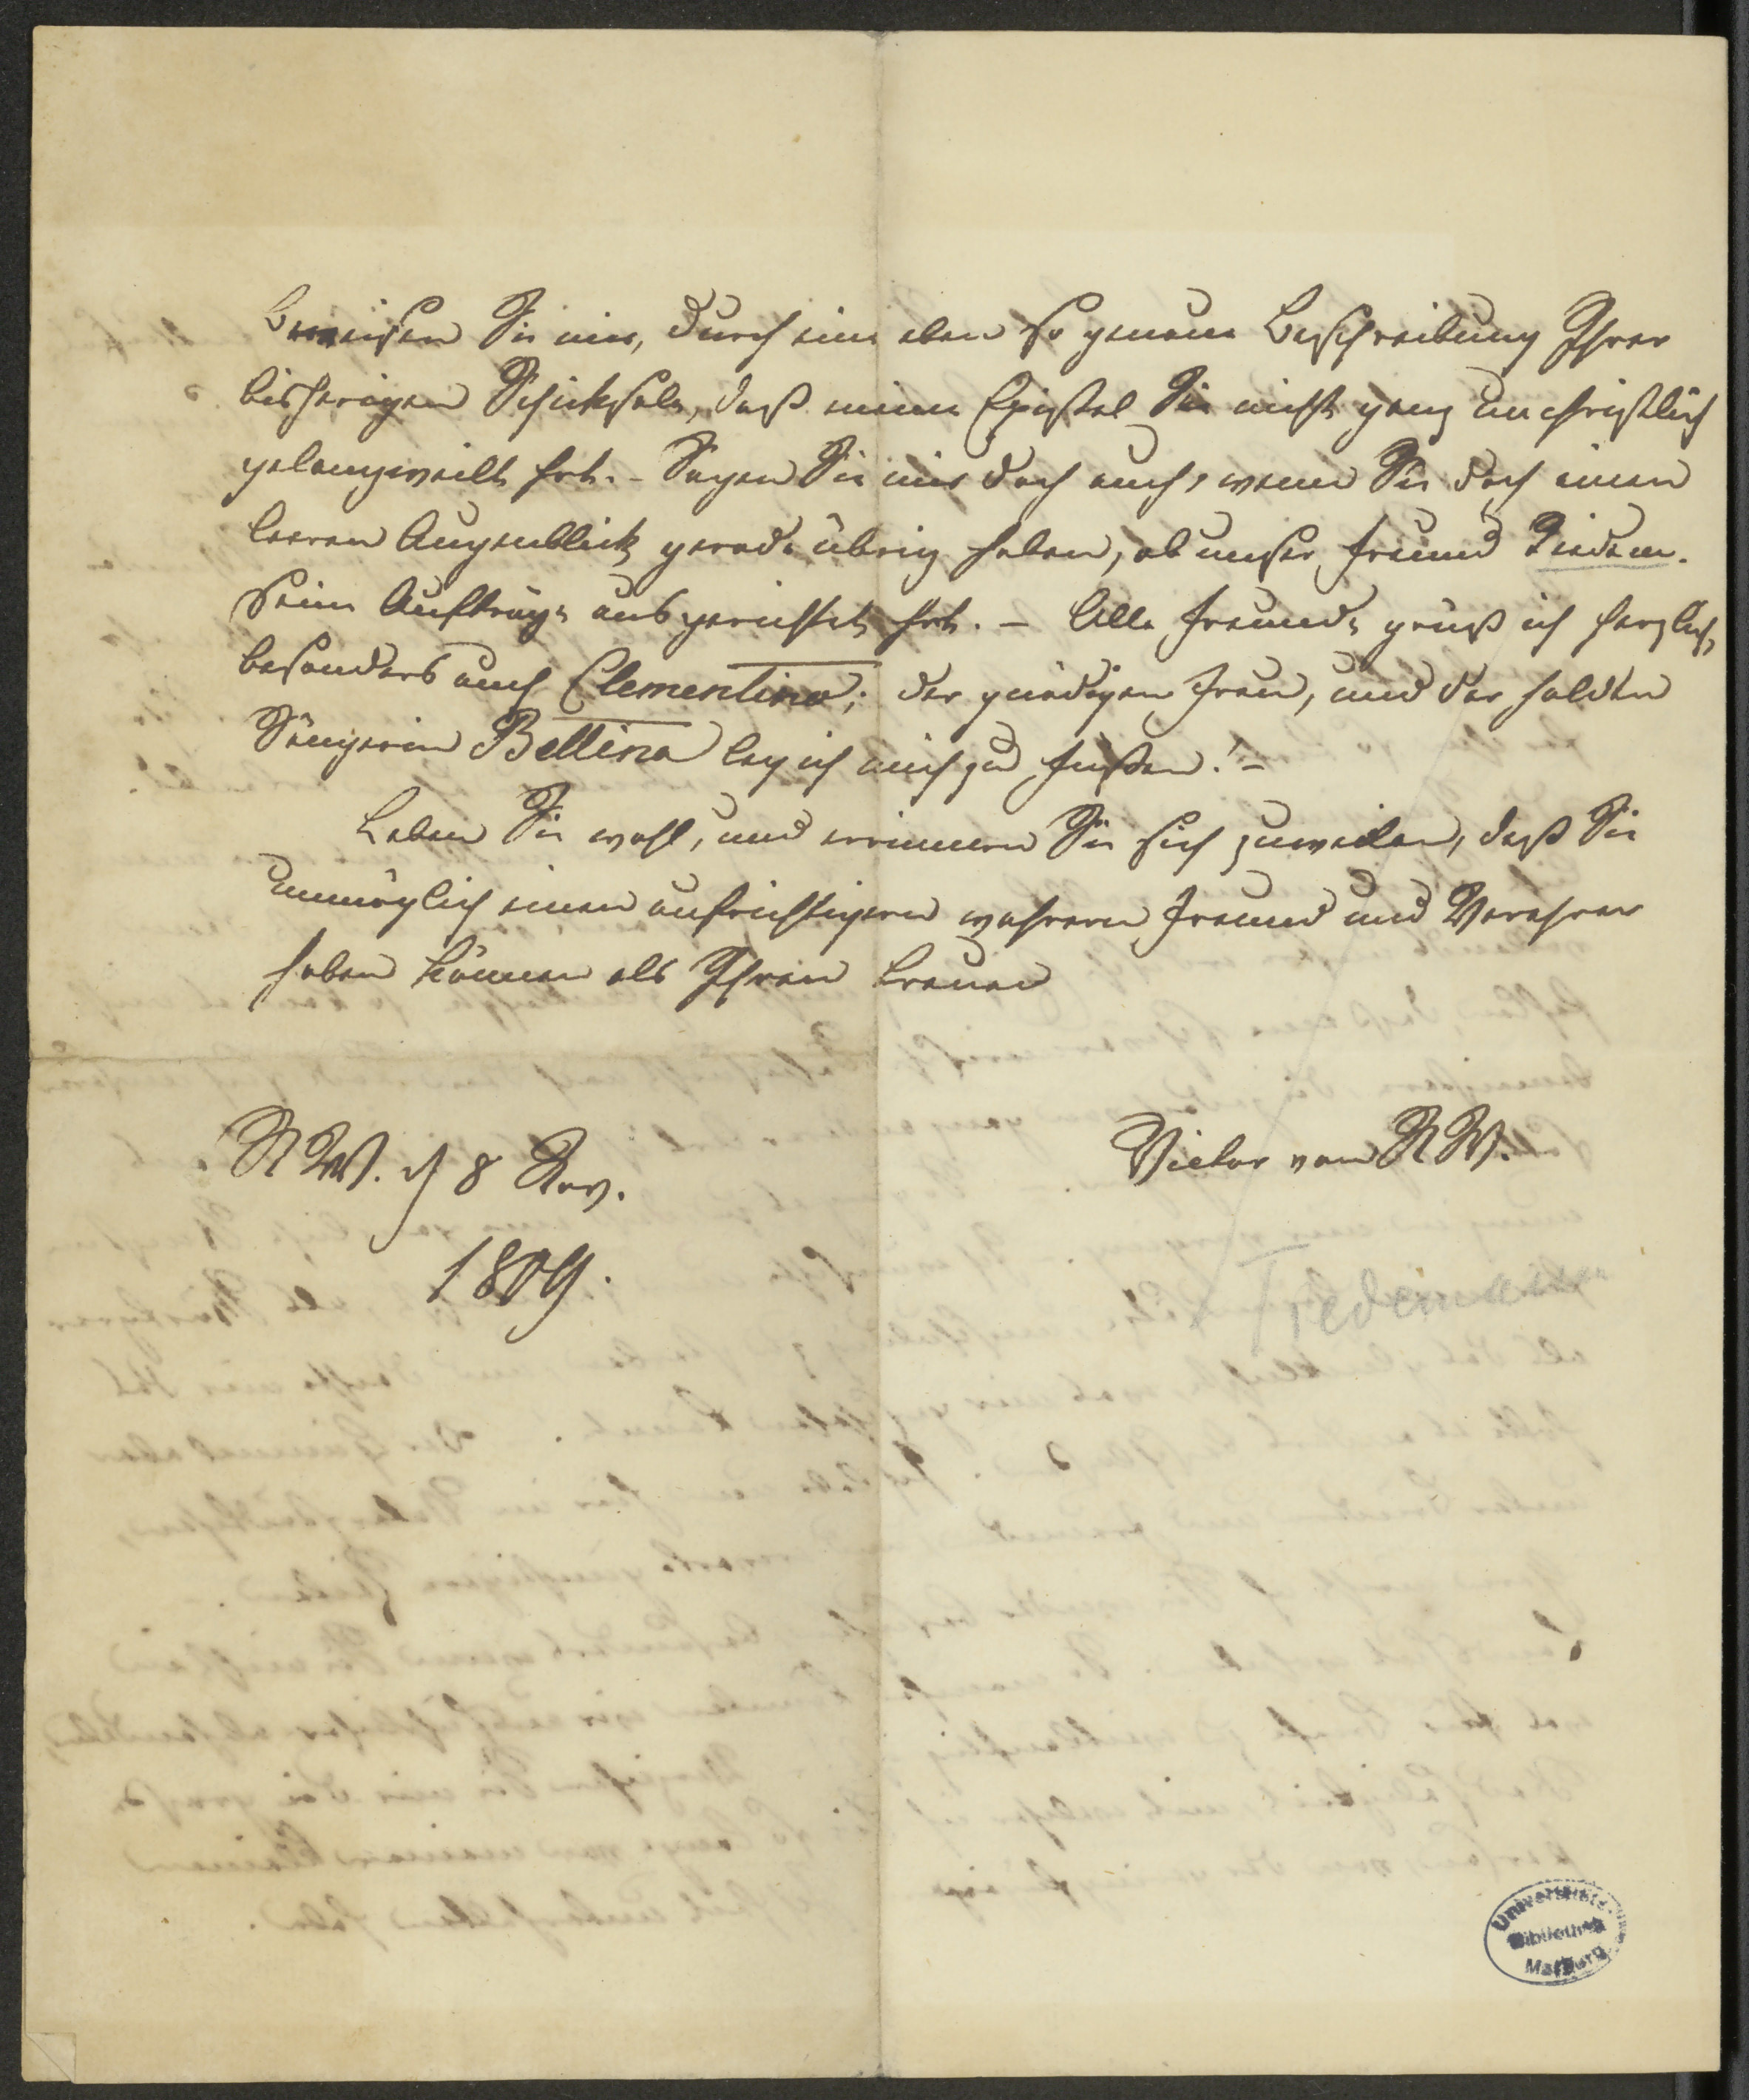 Beweisen Sie mir, durch eine eben so genaue Beschreibung Ihrer
bisherigen Schicksale, daß meine Epistel Sie nicht ganz unchristlich
gelangweilt hat. - Sagen Sie mir doch auch, wenn Sie doch einen
leeren Augenblick gerade übrig haben, ob unser Freund Tiedem.
seine Aufträge ausgerichtet hat. - Alle Freunde grüß ich herzlich,
besonders auch Clementine; der gnädigen Frau, und der holden
Sängerin Bettina leg ich mich zu Füßen! -
Leben Sie wohl, und erinnern Sie sich zuweilen, daß Sie
unmöglich einen aufrichtigern wahrern Freund und Verehrer
haben können als Ihren treuen
Victor von RW.
RW. d 8 Nov.
1809.
Tiedemann
Universitäts-
Bibliothek
Marburg